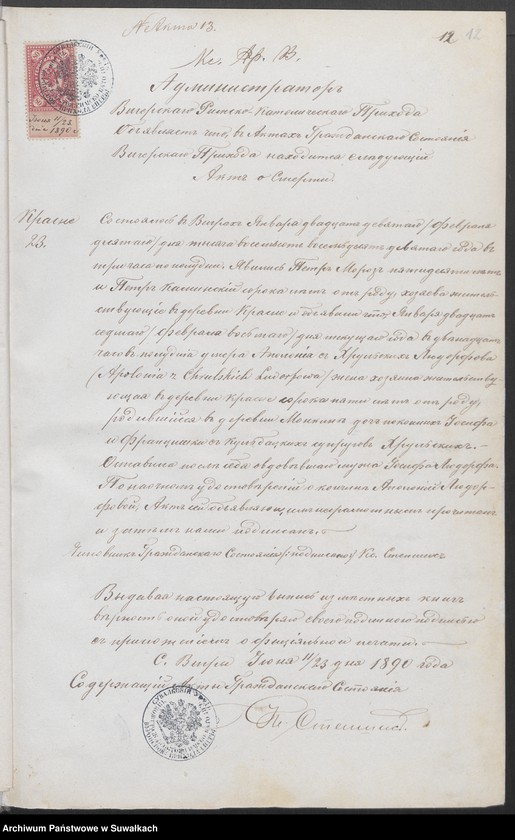 № Акта 13.
12 12
Кс. Др. В.
Администраторъ
Вигерскаго Римско Католическаго Прихода
Объявляетъ что, въ Актахъ Гражданскаго Состоянія
Вигерскаго Прихода находится слѣдующій
Актъ о Смерти.
Іюня 11/23
дня 1890 г.
Красне
23.
Состоялось въ Виграхъ Января двадцать девятаго/Февраля
десятаго/дня тысяча восемьсотъ восемьдесятъ девятаго года въ
три часа по полудни. Явились Петръ Морозъ пятидесяти лѣтъ
и Петръ Калинскій сорока лѣтъ отъ роду, хозяева житель-
ствующіе въ деревни Красне и объявили что, Января двадцать
седьмаго/Февраля восьмаго/дня текущаго года въ двѣнадцать
часовъ полудня умерла Аполонія съ Хрульскихъ Людорфова
(Apolonia z Chrulskich Ludorfowa) жена хозяина жительству-
ющая въ деревни Красне сорока пяти лѣтъ отъ роду,
родившійся въ деревни дочь покойныхъ Іосифа
и Франциски съ супруговъ Хрульскихъ.-
Оставила послѣ себя овдовѣвшаго мужа Іосифа Людорфа.
По наочномъ удостовѣреніи о кончинѣ Аполоніи Людор-
фовой, Актъ сей объявляющимъ неграмотнымъ прочитанъ
и затѣмъ нами подписанъ.-
Чиновникъ Гражданскаго Состоянія (:подписано) Кс.
Выдавая настоящую выпись изъ мѣстныхъ книгъ
вѣрность оной удостовѣряю своеподписью
съ приложеніемъ оффиціальной печати.-
С. Вигры Іюня 11/23 дня 1890 года
Содержащій Акты Гражданскаго Состоянія
Кс.
Archiwum Państwowe w Suwałkach